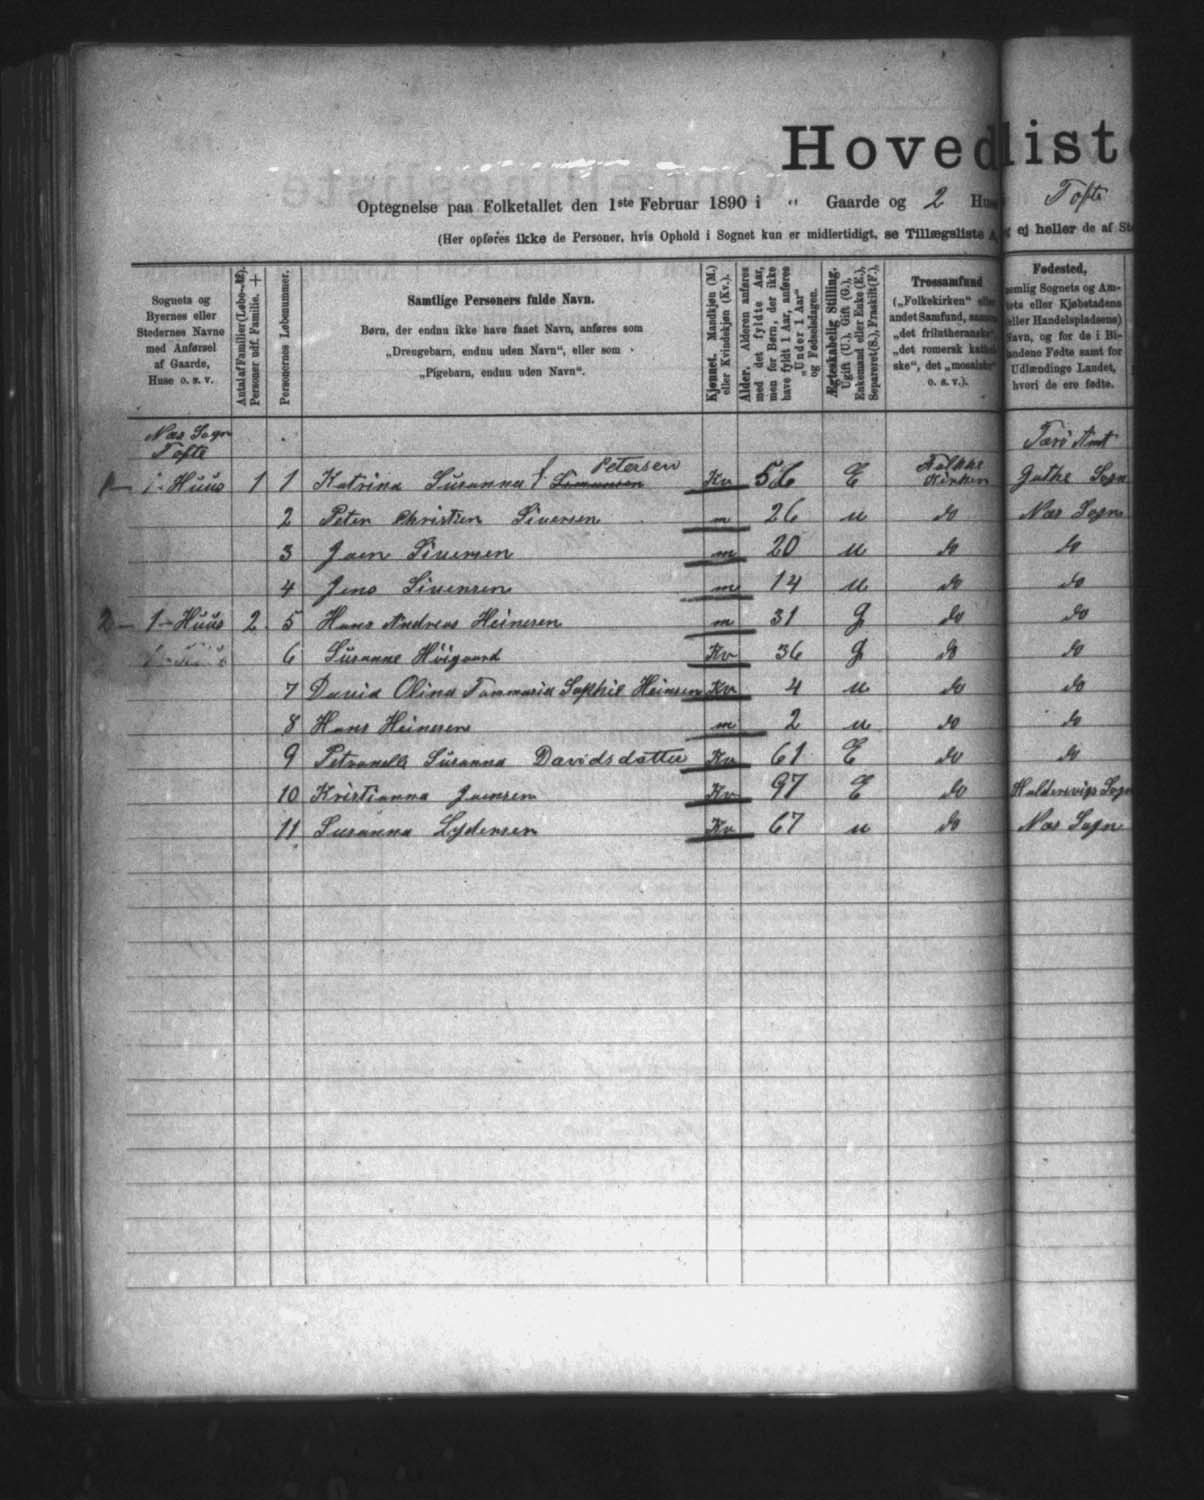 Hovedliste
Optegnelse paa Folketallet den 1ste Februar 1890 i „ Gaarde og 2 Huse Tofte
(Her opføres ikke de Personer, hvis Ophold i Sognet kun er midlertidigt, se Tillægsliste A, ej heller de af
Sognets og Byernes eller Stedernes Navne med Anførsel af Gaarde, Huse o. s. v.
Antal af Familier (Løbe-Nr.). Personer udf. Familie. +
Personernes Løbenummer.
Samtlige Personers fulde Navn.
Børn, der endnu ikke have faaet Navn, anføres som
„Drengebarn, endnu uden Navn“, eller som
„Pigebarn, endnu uden Navn“.
Kjønnet. Mandkjøn (M.) eller Kvindekjøn (Kv.).
Alder. Alderen anføres med det fyldte Aar, men for Børn, der ikke have fyldt 1 Aar, anføres „Under 1 Aar“ og Fødselsdagen.
Ægteskabelig Stilling. Ugift (U.), Gift (G.), Enkemand eller Enke (E.), Separeret (S.), Fraskilt (F.).
Trossamfund („Folkekirken“ eller andet Samfund, saasom „det frilutheranske“, „det romersk katholske“, det „mosaiske“ o. s. v.).
Fødested, nemlig Sognets og Amtets eller Kjøbstadens (eller Handelspladsens) Navn, og for de i Bilandene Fødte samt for Udlændinge Landet, hvori de ere fødte.
Næs Sogn
Tofte Færø Amt
1 - Huus 1 1 Katrina Susanna Simunsen Petersen Kv 56 E Folkekirken Gøthe Sogn
2 Peter Christian Siversen m 26 u do Næs Sogn
3 Joen Siversen m 20 u do do
4 Jens Siversen m 14 u do do
2 - 1 - Huus 2 5 Hans Andreas Heinesen m 31 g do do
6 Susanne Höigaard Kv 36 g do do
7 David Olina Tommasia Sophie Heinesen Kv 4 u do do
8 Hans Heinesen m 2 u do do
9 Petronelle Susanna Davidsdatter Kv 61 E do do
10 Kristianna Joensen Kv 97 E do Haldersvigs Sogn
11 Susanna Lydersen Kv 67 u do Næs Sogn